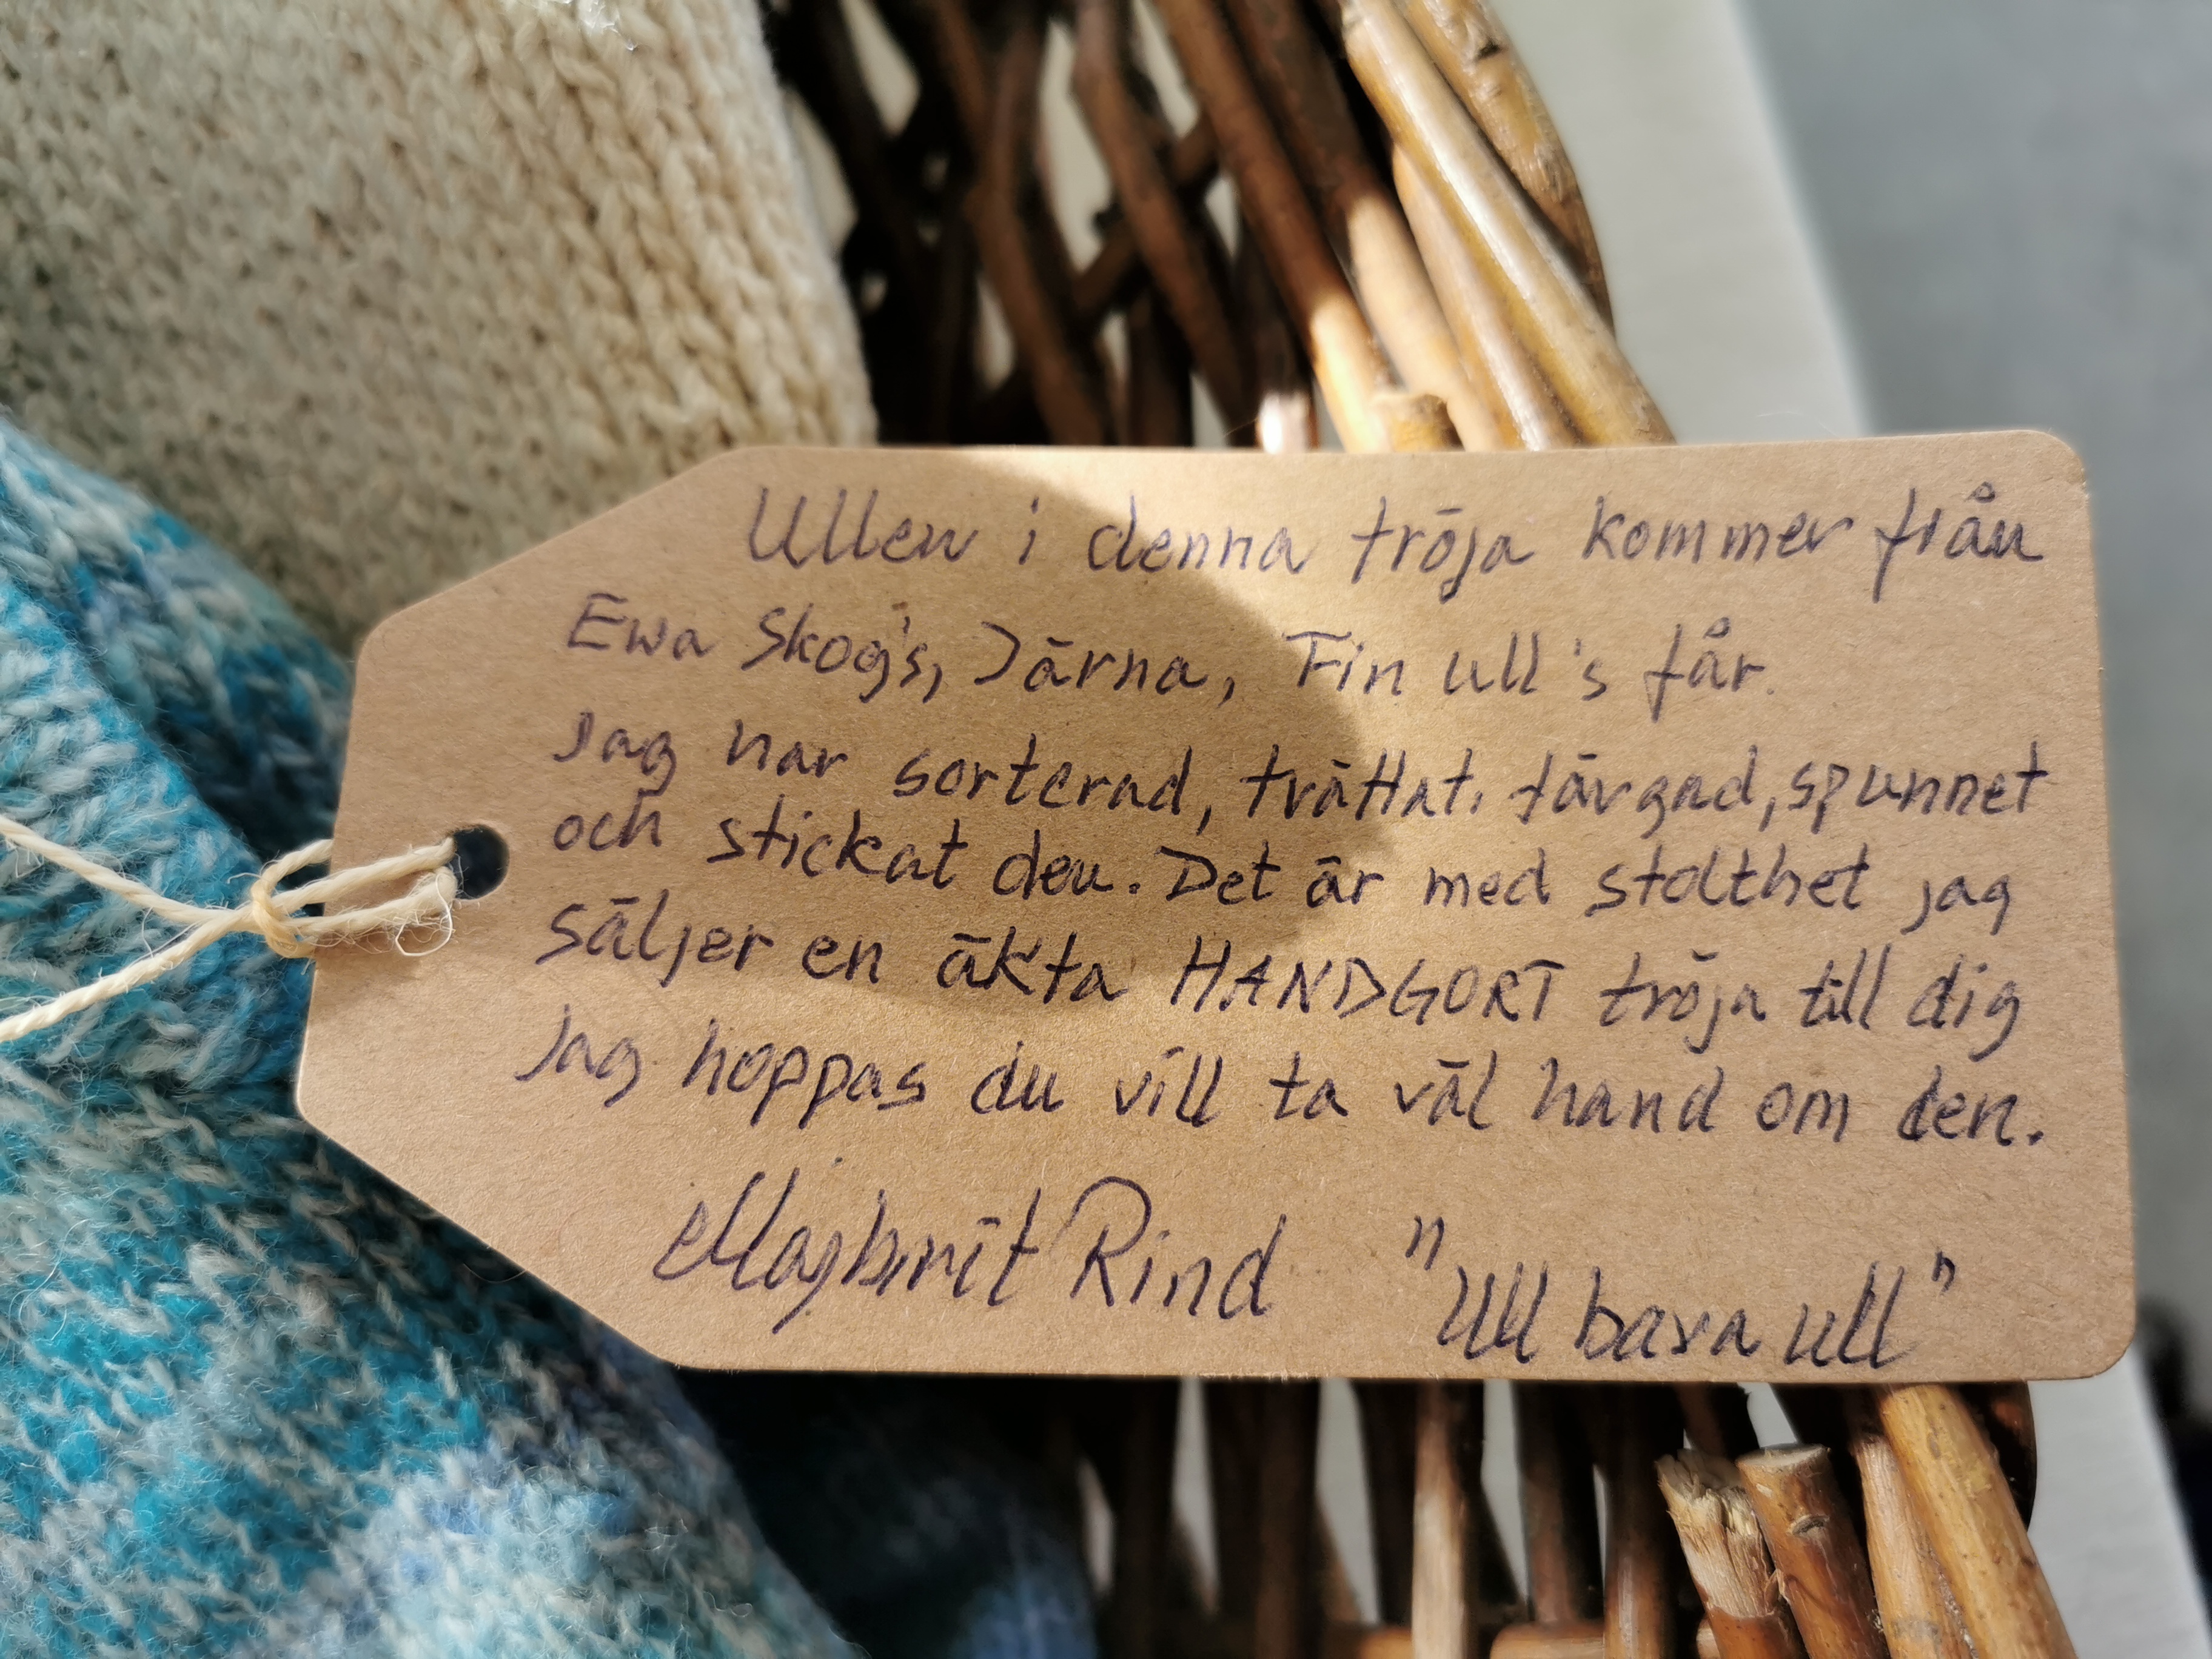 Ullen i denna tröja kommer från
Ewa Skog's, Järna, Fin ull's får.
Jag har sorterad, tvättat, färgad, spunnet
och stickat den. Det är med stolthet jag
säljer en äkta HANDGORT tröja till dig
Jag hoppas du vill ta väl hand om den.
Majbrit Rind "Ull bara ull"